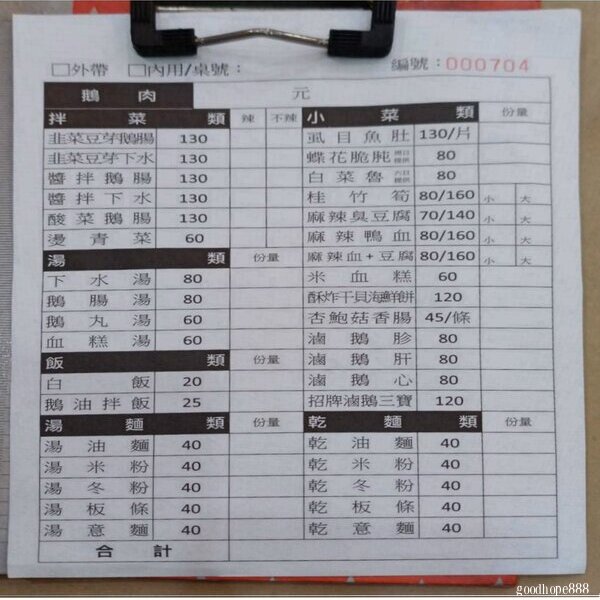 □外帶 □內用/桌號： 編號：000704
鵝肉 元
拌菜類 辣 不辣
韭菜豆芽鵝腸 130
韭菜豆芽下水 130
醬拌鵝腸 130
醬拌下水 130
酸菜鵝腸 130
燙青菜 60
湯類 份量
下水湯 80
鵝腸湯 80
鵝丸湯 60
血糕湯 60
飯類 份量
白飯 20
鵝油拌飯 25
湯麵類 份量
湯油麵 40
湯米粉 40
湯冬粉 40
湯板條 40
湯意麵 40
合計
小菜類 份量
虱目魚肚 130/片
蝶花脆肫 80
白菜魯 80
桂竹筍 80/160 小 大
麻辣臭豆腐 70/140 小 大
麻辣鴨血 80/160 小 大
麻辣血+豆腐 80/160 小 大
米血糕 60
酥炸干貝海鮮餅 120
杏鮑菇香腸 45/條
滷鵝胗 80
滷鵝肝 80
滷鵝心 80
招牌滷鵝三寶 120
乾麵類 份量
乾油麵 40
乾米粉 40
乾冬粉 40
乾板條 40
乾意麵 40
goodhope888